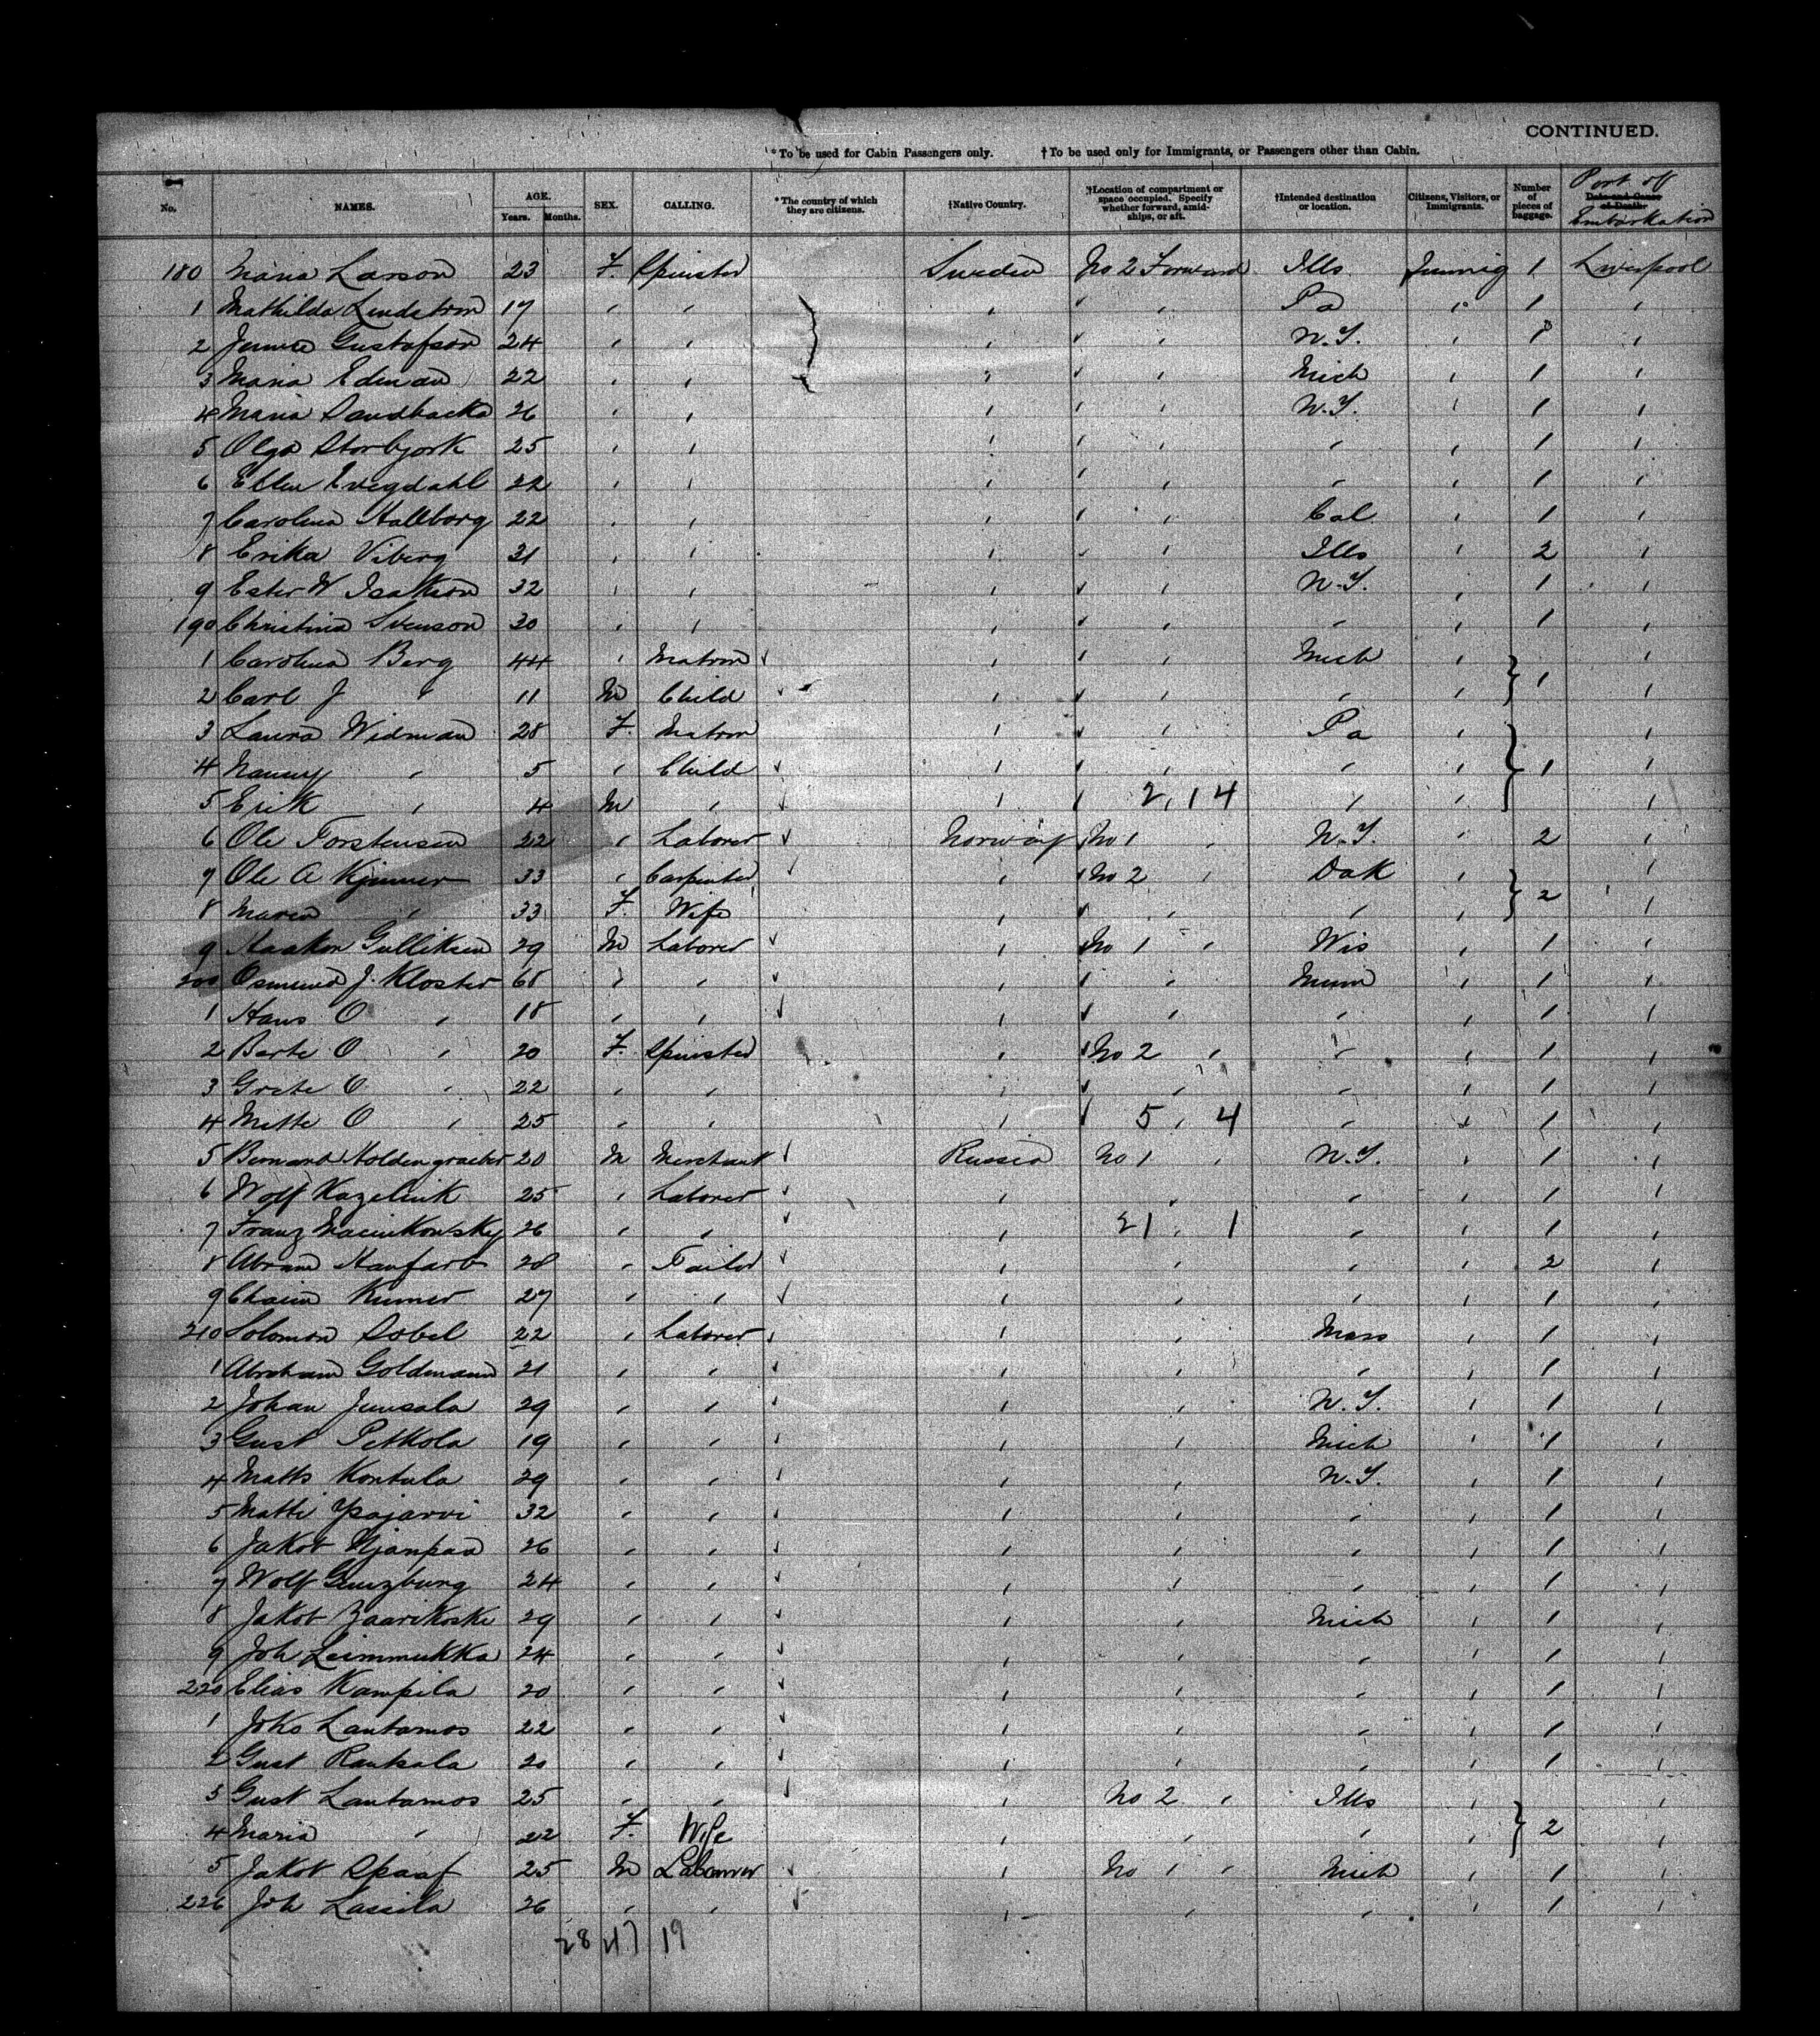 CONTINUED.
* To be used for Cabin Passengers only. † To be used only for Immigrants, or Passengers other than Cabin.
No. NAMES. AGE. Years. Months. SEX. CALLING. * The country of which they are citizens. † Native Country. † Location of compartment or space occupied. Specify whether forward, amidships, or aft. † Intended destination or location. Citizens, Visitors, or Immigrants. Number of pieces of baggage. Date and Cause of Death. Port of Embarkation
180 Maria Larson 23 F. Spinster Sweden No 2 Forward Ills Immig 1 Liverpool
1 Mathilda Lindstrom 17 " " " " " Pa " 1 "
2 Gustafson 24 " " " " " N.Y. " 1 "
3 Maria Edman 22 " " " " " Mich " 1 "
4 Maria Sandbacka 26 " " " " " N.Y. " 1 "
5 Olga Storbjork 25 " " " " " " " 1 "
6 Ellen 22 " " " " " " " 1 "
7 Carolina Hallborg 22 " " " " " Cal " 1 "
8 Erika Viberg 31 " " " " " Ills " 2 "
9 Ester W Isakson 32 " " " " " N.Y. " 1 "
190 Christina Svenson 30 " " " " " " " 1 "
1 Carolina Berg 44 " Matron " " " Mich " "
2 Carl J " 11 M Child " " " " " 1 "
3 Laura Widman 28 F. Matron " " " Pa " "
4 Nanny " 5 " Child " " " " " 1 "
5 Erik " 4 M " " 2, 14 " " "
6 Ole Torstensen 22 " Laborer Norway No 1 " N.Y. " 2 "
7 Ole A 33 " Carpenter " No 2 " Dak " "
8 Maren " 33 F. Wife " " " " " 2 "
9 Haakon Gulliksen 29 M Laborer " No 1 " Wis " 1 "
200 Osmund J. Kloster 68 " " " " " Minn " 1 "
1 Hans O " 18 " " " " " " " 1 "
2 Berte O " 20 F. Spinster " No 2 " " " 1 "
3 Grete O " 22 " " " " " " " 1 "
4 Mette O " 25 " " " 5, 4 " " 1 "
5 Bernard 20 M Merchant Russia No 1 " N.Y. " 1 "
6 Wolf Kazelnik 25 " Laborer " " " " 1 "
7 Franz 26 " " " 21 , 1 " " 1 "
8 Abram Hanfarb 28 " Tailor " " " " 2 "
9 Chaim 27 " " " " " " 1 "
210 Solomon Sobel 22 " Laborer " " Mass " 1 "
1 Abraham Goldmann 21 " " " " " " 1 "
2 Johan 29 " " " " N.Y. " 1 "
3 Gust Petkola 19 " " " " Mich " 1 "
4 Matts Kontula 29 " " " " N.Y. " 1 "
5 Matti Ypajarvi 32 " " " " " " 1 "
6 Jakob 26 " " " " " " 1 "
7 Wolf Ginzburg 24 " " " " " " 1 "
8 Jakob 29 " " " " Mich " 1 "
9 Joh 24 " " " " " " 1 "
220 Elias Kampila 20 " " " " " " 1 "
1 Lantamos 22 " " " " " " 1 "
2 Gust 20 " " " " " " 1 "
3 Gust Lantamos 25 " " " No 2 " Ills " "
4 Maria " 22 F. Wife " " " " 2 "
5 Jakob Spaaf 25 M Laborer " No 1 " Mich " 1 "
226 Joh Lassila 26 " " " " " " 1 "
28 47 19